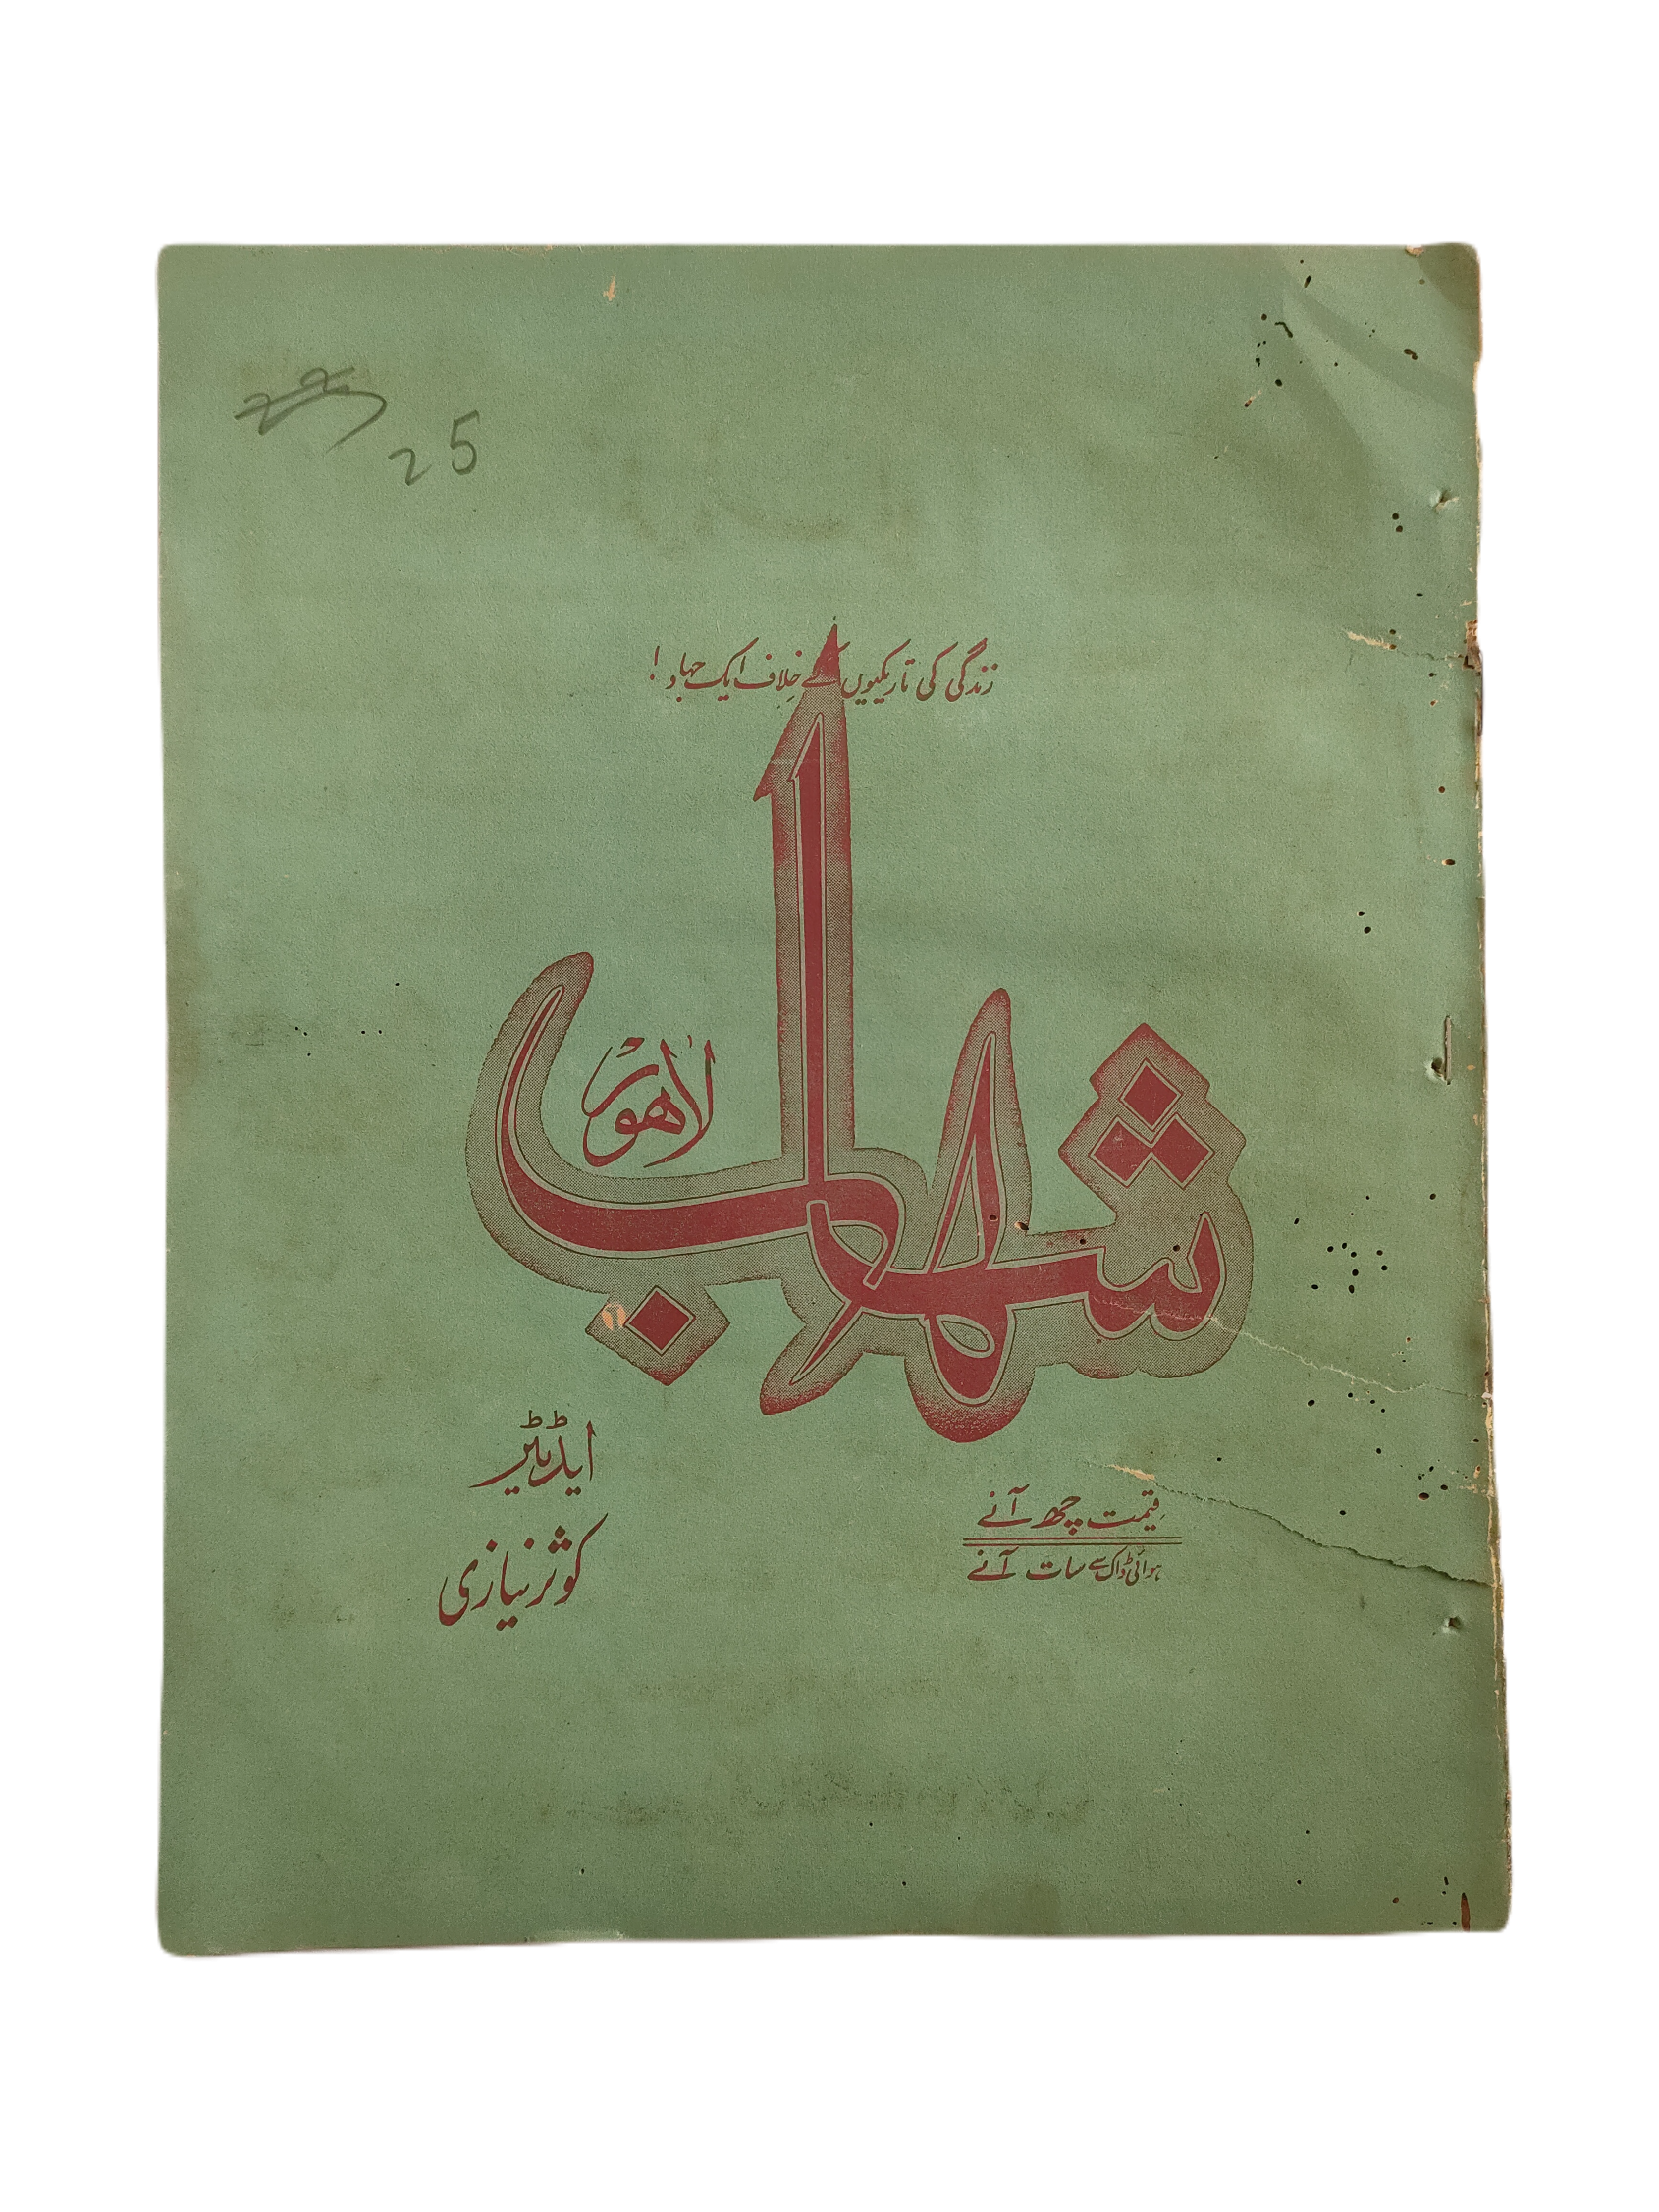 25
زندگی کی تاریکیوں کے خلاف ایک جہاد!
شہاب
لاہور
ایڈیٹر
کوثر نیازی
قیمت چھ آنے
ہوائی ڈاک سے سات آنے